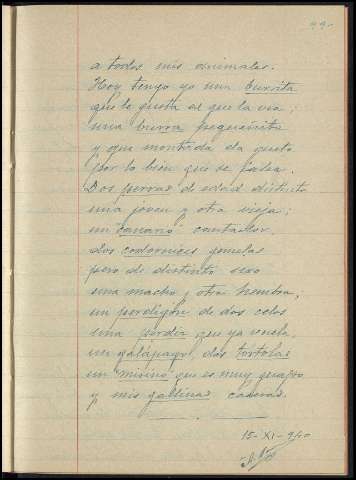 99-
a todos mis animales.
Hoy tengo yo una burrita
que le gusta al que la vea;
una burra pequeñita
y que montada da gusto
por lo bien que se
Dos perras de edad distinta
una joven y otra vieja;
un "canario" cantador,
dos codornices gemelas
pero de distinto sexo
una macho y otra hembra,
un perdigón de dos celos
una perdiz que ya vuela,
un galápago, dos tortolas
un "minino" que es muy guapo
y mis gallinas caseras.
15-XI-940